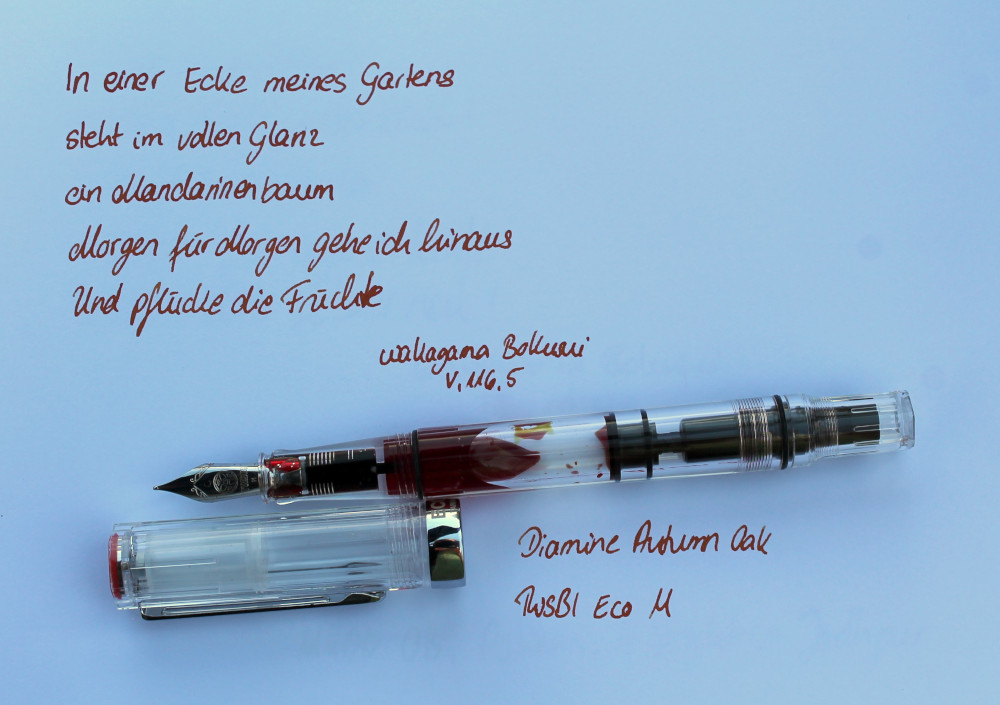 In einer Ecke meines Gartens
steht im vollen Glanz
ein Mandarinenbaum
Morgen für Morgen gehe ich hinaus
Und pflücke die Früchte
wakagama Bokusui
V. 116, 5
Diamine Autumn Oak
TWSBI Eco M